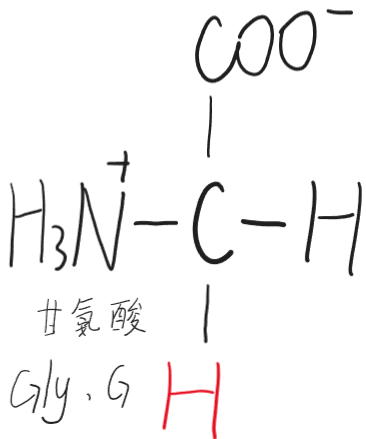 COO⁻
H₃N⁺-C-H
甘氨酸
Gly、G H